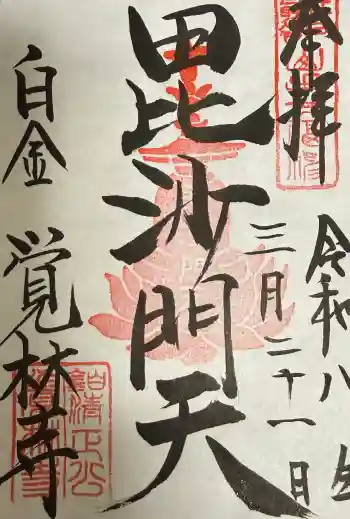 奉拝
令和八年
三月二十一日
毘沙門天
白金 覚林寺
清正公